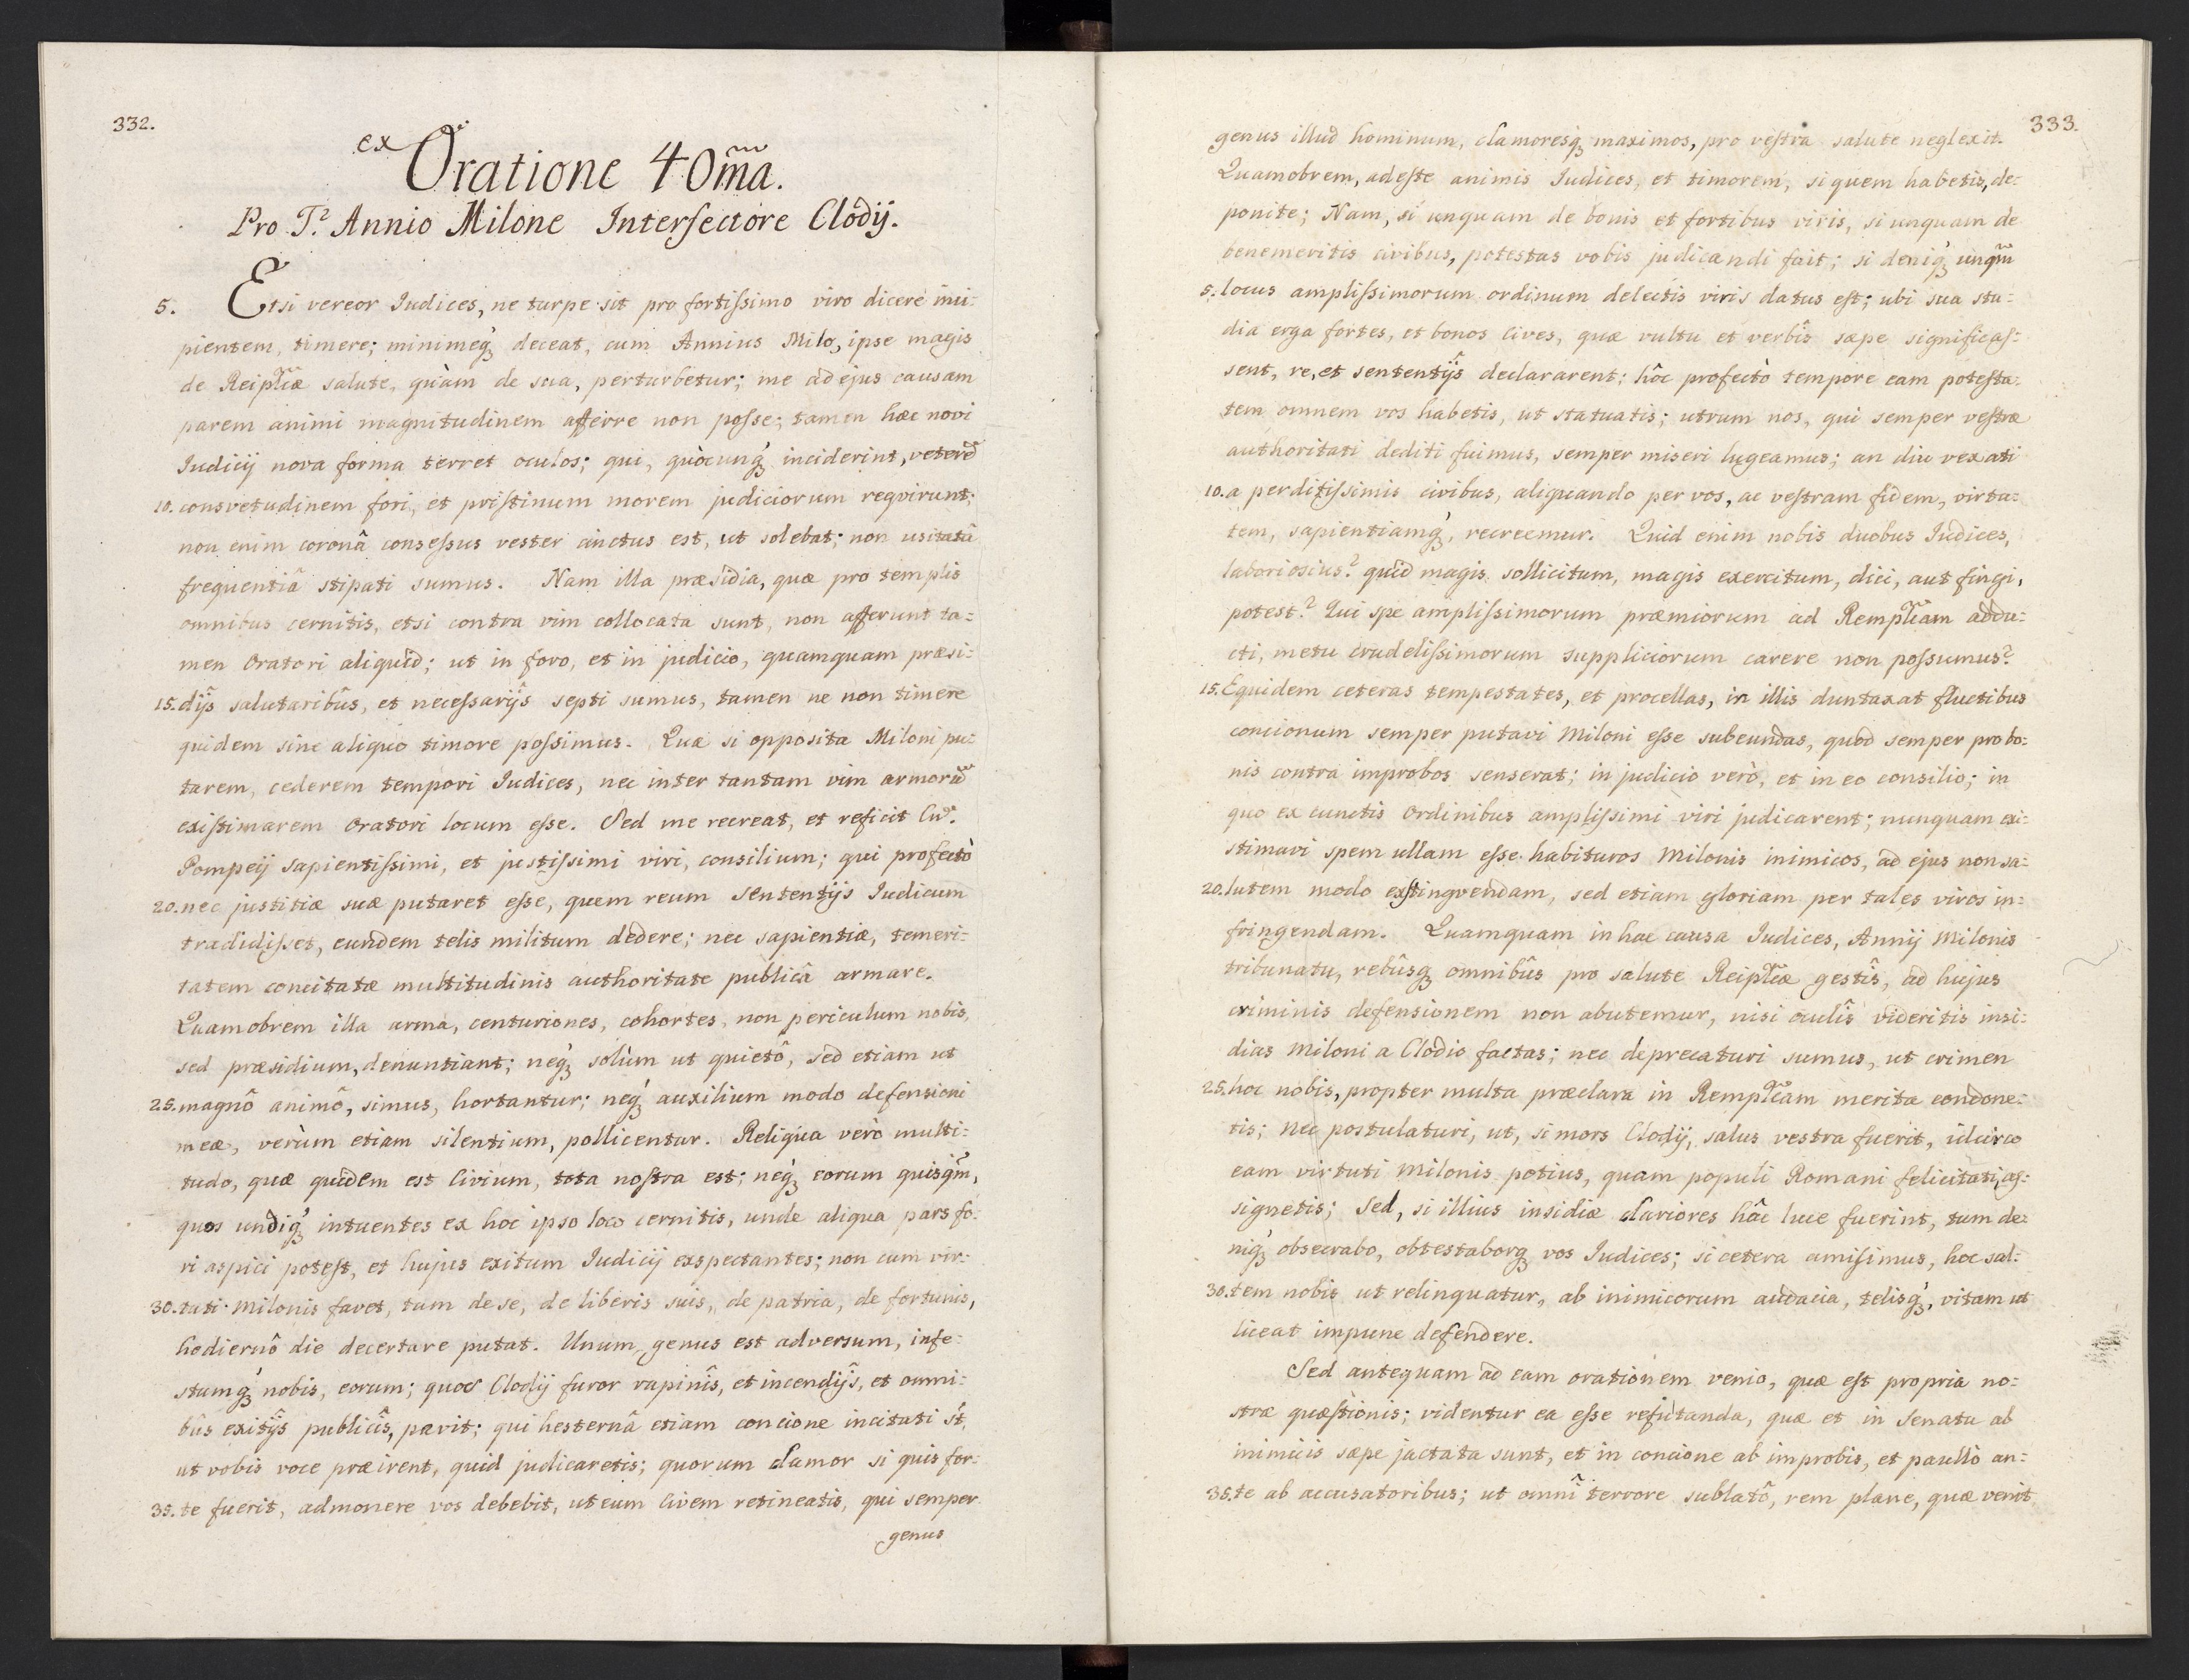 332.
ex Oratione 40m̃a.
Pro T.² Annio Milone Interfectore Clodij.
5. Etsi vereor Iudices, ne turpe sit pro fortissimo viro dicere inci-
pientem, timere; minimeq́ꝫ deceat, cum Annius Milo, ipse magis
de Reipl̃cæ salute, quàm de sua, perturbetur; me ad ejus causam
parem animi magnitudinem afferre non posse; tamen hæc novi
Iudicij nova forma terret oculos; qui, quòcunq́ꝫ inciderint, veterẽ
10. consvetudinem fori, et pristinum morem judiciorum reqvirunt;
non enim coronâ consessus vester cinctus est, ut solebat; non usitatâ
frequentiâ stipati sumus. Nam illa præsidia, quæ pro templis
omnibus cernitis, etsi contra vim collocata sunt, non afferunt ta=
men Oratori aliquid; ut in foro, et in judicio, quamquam præsi=
15. dijs salutaribûs, et necessarijs septi sumus, tamen ne non timere
quidem sine aliquo timore possimus. Quæ si opposita Miloni pu=
tarem, cederem tempori Iudices, nec inter tantam vim armorũ
existimarem Oratori locum esse. Sed me recreat, et reficit Cn.
Pompeij sapientissimi, et justissimi viri, consilium; qui profectò
20. nec justitiæ suæ putaret esse, quem reum sententijs Iudicum
tradidisset, eundem telis militum dedere; nec sapientiæ, temeri=
tatem concitatæ multitudinis authoritate publicâ armare.
Quamobrem illa arma, centuriones, cohortes, non periculum nobis,
sed præsidium, denuntiant; neq́ꝫ solùm ut quietô, sed etiam ut
25. magnô animô, simus, hortantur; neq́ꝫ auxilium modo defensioni
meæ, verùm etiam silentium, pollicentur. Reliqua verò multi=
tudo, quæ quidem est Civium, tota nostra est; neq́ꝫ eorum quisqm̃,
quos undiq́ꝫ intuentes ex hoc ipso loco cernitis, unde aliqua pars fo=
ri aspici potest, et hujus exitum Iudicij exspectantes; non cum vir=
30. tuti Milonis favet, tum de se, de liberis suis, de patria, de fortunis,
hodiernô die decertare putat. Unum genus est adversum, infe=
stumq́ꝫ nobis, eorum; quos Clodij furor rapinîs, et incendijs, et omni=
bûs exitijs publicîs, pavit; qui hesternâ etiam concione incitati st̃,
ut vobis voce præirent, quid judicaretis; quorum clamor si quis for=
35. te fuerit, admonere vos debebit, ut eum Civem retineatis, qui semper
genus
333.
genus illud hominum, clamoresqꝫ maximos, pro vestra salute neglexit.
Quamobrem, adeste animis Iudices, et timorem, si quem habetis, de=
ponite; Nam, si unquam de bonis et fortibus viris, si unquam de
benemeritis civibus, potestas vobis judicandi fuit; si deniq́ꝫ unqm̃
5. locus amplissimorum ordinum delectis viris datus est; ubi sua stu=
dia erga fortes, et bonos Cives, quæ vultu et verbîs sæpe significas=
sent, re, et sententijs declararent; hôc profectò tempore eam potesta=
tem omnem vos habetis, ut statuatis; utrum nos, qui semper vestræ
authoritati dediti fuimus, semper miseri lugeamus; an diu vexati
10. a perditissimis civibus, aliquando per vos, ac vestram fidem, virtu=
tem, sapientiamq́ꝫ, recreemur. Quid enim nobis duobus Iudices,
laboriosius? quid magis sollicitum, magis exercitum, dici, aut fingi,
potest? Qui spe amplissimorum præmiorum ad Rempl̃cam addu=
cti, metu crudelissimorum suppliciorum carere non possumus?
15. Equidem ceteras tempestates, et procellas, in illis duntaxat fluctibus
concionum semper putavi Miloni esse subeundas, quod semper pro bo=
nis contra improbos senserat; in judicio verò, et in eo consilio; in
quo ex cunctis Ordinibus amplissimi viri judicarent; nunquam exi=
stimavi spem ullam esse habituros Milonis inimicos, ad ejus non sa=
20. lutem modo exstingvendam, sed etiam gloriam per tales viros in=
fringendam. Quamquam in hac causa Iudices, Annij Milonis
tribunatu, rebûsqꝫ omnibûs pro salute Reipl̃cæ gestîs, ad hujus
criminis defensionem non abutemur, nisi oculîs videritis insi=
dias Miloni a Clodio factas; nec deprecaturi sumus, ut crimen
25. hoc nobis, propter multa præclara in Rempl̃cam merita condone=
tis; nec postulaturi, ut, si mors Clodij, salus vestra fuerit, idcirco
eam virtuti Milonis potius, quam populi Romani felicitati, as=
signetis; Sed, si illius insidiæ clariores hâc luce fuerint, tum de=
niq́ꝫ obsecrabo, obtestaborqꝫ vos Iudices; si cetera amisimus, hoc sal=
30. tem nobis ut relinquatur, ab inimicorum audacia, telisq́ꝫ, vitam ut
liceat impune defendere.
Sed antequam ad eam orationem venio, quæ est propria no=
stræ quæstionis; videntur ea esse refutanda, quæ et in Senatu ab
inimicis sæpe jactata sunt, et in concione ab improbis, et paullò an=
35. te ab accusatoribus; ut omnî terrore sublatô, rem plane, quæ venit